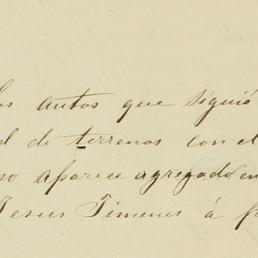 los autos que siguió
d de terrenos con el
so aparece agregado en
Jesus Jimenes á f